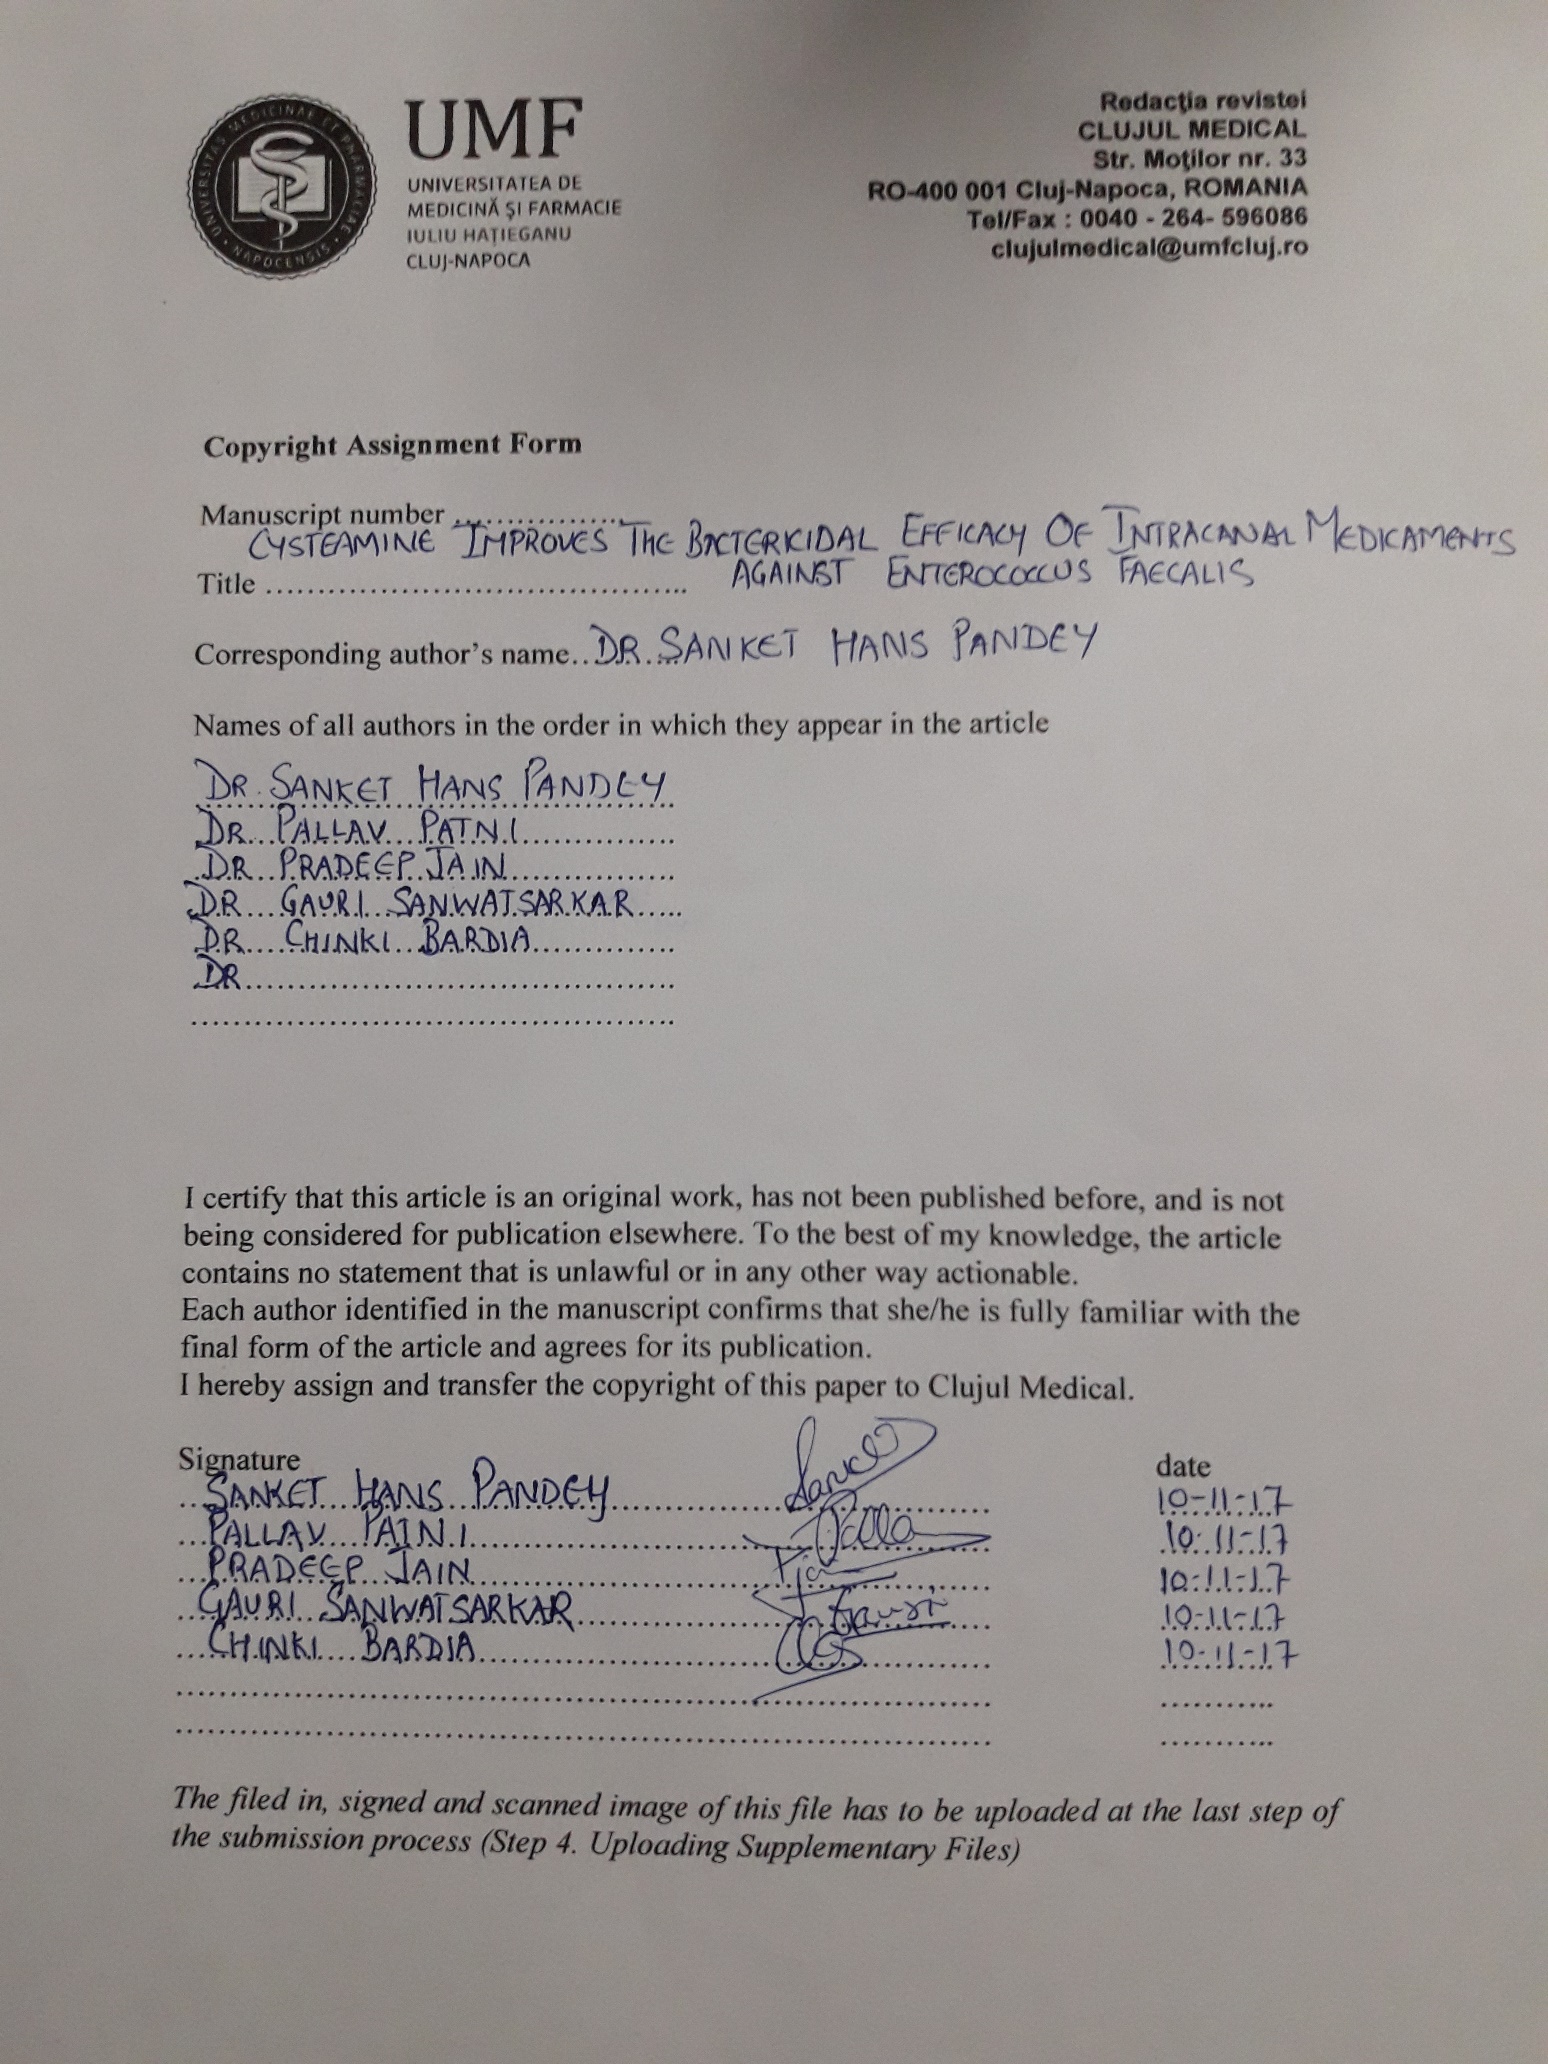 UNIVERSITAS MEDICINAE ET PHARMACIAE · NAPOCENSIS ·
UMF
UNIVERSITATEA DE
MEDICINĂ ŞI FARMACIE
IULIU HAŢIEGANU
CLUJ-NAPOCA
Redacţia revistei
CLUJUL MEDICAL
Str. Moţilor nr. 33
RO-400 001 Cluj-Napoca, ROMANIA
Tel/Fax : 0040 - 264- 596086
clujulmedical@umfcluj.ro
Copyright Assignment Form
Manuscript number ....................
CYSTEAMINE IMPROVES THE BACTERICIDAL EFFICACY OF INTRACANAL MEDICAMENTS
AGAINST ENTEROCOCCUS FAECALIS
Title ..........................................
Corresponding author's name.. DR. SANKET HANS PANDEY
Names of all authors in the order in which they appear in the article
DR. SANKET HANS PANDEY
DR PALLAV PATNI
DR PRADEEP JAIN
DR GAURI SANWATSARKAR
DR CHINKI BARDIA
DR
I certify that this article is an original work, has not been published before, and is not
being considered for publication elsewhere. To the best of my knowledge, the article
contains no statement that is unlawful or in any other way actionable.
Each author identified in the manuscript confirms that she/he is fully familiar with the
final form of the article and agrees for its publication.
I hereby assign and transfer the copyright of this paper to Clujul Medical.
Signature date
SANKET HANS PANDEY Sanket 10-11-17
PALLAV PATNI 10-11-17
PRADEEP JAIN 10-11-17
GAURI SANWATSARKAR Gauri 10-11-17
CHINKI BARDIA 10-11-17
The filed in, signed and scanned image of this file has to be uploaded at the last step of
the submission process (Step 4. Uploading Supplementary Files)